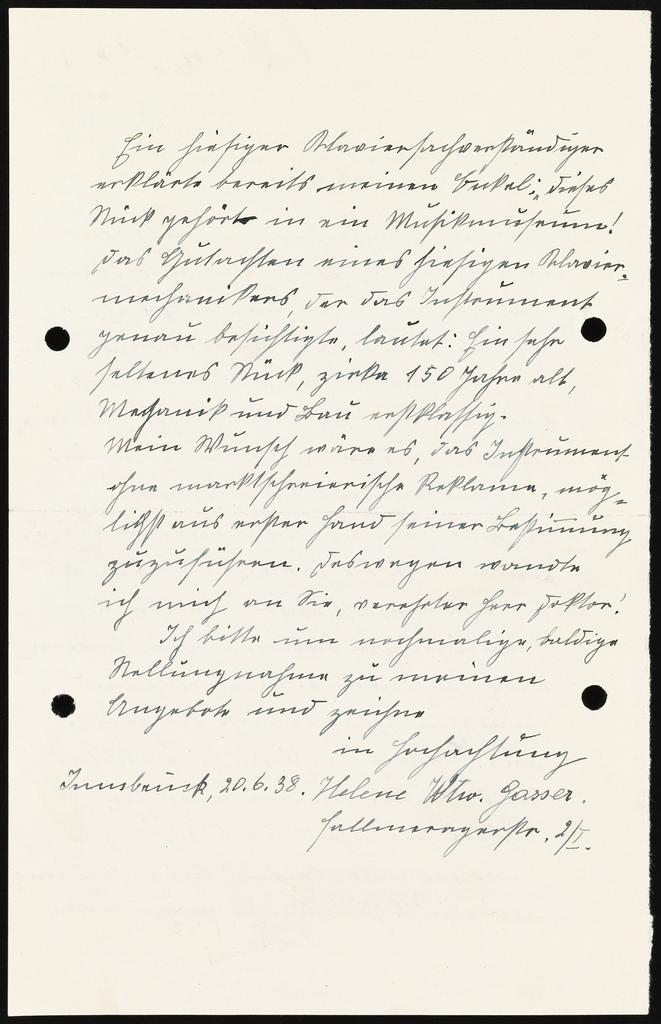 Ein hiesiger Klaviersachverständiger
erklärte bereits meinen Onkel: „dieses
Stück gehört in ein Musikmuseum!
Das Gutachten eines hiesigen Klavier-
mechanikers, der das Instrument
genau besichtigte, lautet: Ein sehr
seltenes Stück, zirka 150 Jahre alt,
Mechanik und Bau erstklassig.
Mein Wunsch wäre es, das Instrument
ohne marktschreierische Reklame, mög-
lichst aus erster Hand seiner Bestimmung
zuzuführen. Deswegen wandte
ich mich an Sie, verehrter Herr Doktor!
Ich bitte um nochmalige, baldige
Stellungnahme zu meinen
Angebote und zeichne
in Hochachtung
Innsbruck, 20.6.38. Helene Wtw. Gasser.
Fallmerayerstr. 2/I.